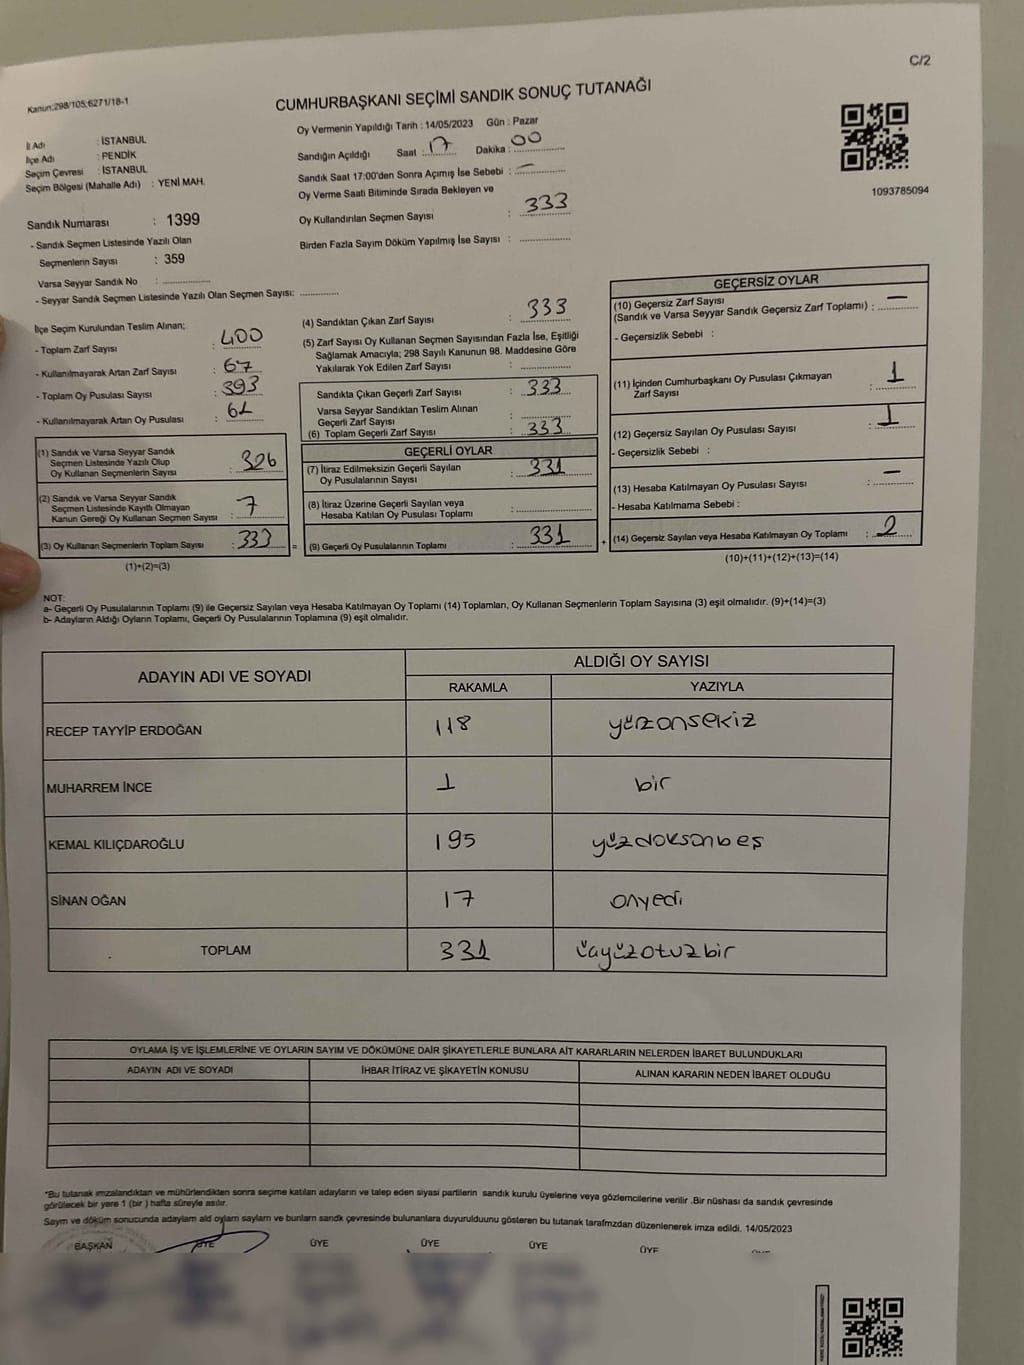 C/2
Kanun:298/105;6271/18-1
CUMHURBAŞKANI SEÇİMİ SANDIK SONUÇ TUTANAĞI
İl Adı : İSTANBUL
İlçe Adı : PENDİK
Seçim Çevresi : İSTANBUL
Seçim Bölgesi (Mahalle Adı) : YENİ MAH.
Oy Vermenin Yapıldığı Tarih : 14/05/2023 Gün : Pazar
Sandığın Açıldığı Saat : 17 Dakika : 00
Sandık Saat 17:00'den Sonra Açımış İse Sebebi : —
Oy Verme Saati Bitiminde Sırada Bekleyen ve
Oy Kullandırılan Seçmen Sayısı : 333
Birden Fazla Sayım Döküm Yapılmış İse Sayısı :
1093785094
Sandık Numarası : 1399
- Sandık Seçmen Listesinde Yazılı Olan
Seçmenlerin Sayısı : 359
Varsa Seyyar Sandık No :
- Seyyar Sandık Seçmen Listesinde Yazılı Olan Seçmen Sayısı:
İlçe Seçim Kurulundan Teslim Alınan;
- Toplam Zarf Sayısı : 400
- Kullanılmayarak Artan Zarf Sayısı : 67
- Toplam Oy Pusulası Sayısı : 393
- Kullanılmayarak Artan Oy Pusulası :
(1) Sandık ve Varsa Seyyar Sandık
Seçmen Listesinde Yazılı Olup
Oy Kullanan Seçmenlerin Sayısı : 326
(2) Sandık ve Varsa Seyyar Sandık
Seçmen Listesinde Kayıtlı Olmayan
Kanun Gereği Oy Kullanan Seçmen Sayısı : 7
(3) Oy Kullanan Seçmenlerin Toplam Sayısı : 333
(1)+(2)=(3)
(4) Sandıktan Çıkan Zarf Sayısı : 333
(5) Zarf Sayısı Oy Kullanan Seçmen Sayısından Fazla İse, Eşitliği
Sağlamak Amacıyla; 298 Sayılı Kanunun 98. Maddesine Göre
Yakılarak Yok Edilen Zarf Sayısı :
Sandıkta Çıkan Geçerli Zarf Sayısı : 333
Varsa Seyyar Sandıktan Teslim Alınan
Geçerli Zarf Sayısı :
(6) Toplam Geçerli Zarf Sayısı : 333
GEÇERLİ OYLAR
(7) İtiraz Edilmeksizin Geçerli Sayılan
Oy Pusulalarının Sayısı : 331
(8) İtiraz Üzerine Geçerli Sayılan veya
Hesaba Katılan Oy Pusulası Toplamı :
= (9) Geçerli Oy Pusulalarının Toplamı : 331
GEÇERSİZ OYLAR
(10) Geçersiz Zarf Sayısı
(Sandık ve Varsa Seyyar Sandık Geçersiz Zarf Toplamı) : —
- Geçersizlik Sebebi :
(11) İçinden Cumhurbaşkanı Oy Pusulası Çıkmayan
Zarf Sayısı : 1
(12) Geçersiz Sayılan Oy Pusulası Sayısı : 1
- Geçersizlik Sebebi :
(13) Hesaba Katılmayan Oy Pusulası Sayısı : —
- Hesaba Katılmama Sebebi :
+ (14) Geçersiz Sayılan veya Hesaba Katılmayan Oy Toplamı : 2
(10)+(11)+(12)+(13)=(14)
NOT:
a- Geçerli Oy Pusulalarının Toplamı (9) ile Geçersiz Sayılan veya Hesaba Katılmayan Oy Toplamı (14) Toplamları, Oy Kullanan Seçmenlerin Toplam Sayısına (3) eşit olmalıdır. (9)+(14)=(3)
b- Adayların Aldığı Oyların Toplamı, Geçerli Oy Pusulalarının Toplamına (9) eşit olmalıdır.
ADAYIN ADI VE SOYADI
ALDIĞI OY SAYISI
RAKAMLA YAZIYLA
RECEP TAYYİP ERDOĞAN 118 yüzonsekiz
MUHARREM İNCE 1 bir
KEMAL KILIÇDAROĞLU 195 yüzdoksanbeş
SİNAN OĞAN 17 onyedi
TOPLAM 331 üçyüzotuzbir
OYLAMA İŞ VE İŞLEMLERİNE VE OYLARIN SAYIM VE DÖKÜMÜNE DAİR ŞİKAYETLERLE BUNLARA AİT KARARLARIN NELERDEN İBARET BULUNDUKLARI
ADAYIN ADI VE SOYADI İHBAR İTİRAZ VE ŞİKAYETİN KONUSU ALINAN KARARIN NEDEN İBARET OLDUĞU
*Bu tutanak imzalandıktan ve mühürlendikten sonra seçime katılan adayların ve talep eden siyasi partilerin sandık kurulu üyelerine veya gözlemcilerine verilir .Bir nüshası da sandık çevresinde
görülecek bir yere 1 (bir ) hafta süreyle asılır.
Sayım ve döküm sonucunda adaylam ald oylam saylam ve bunlam sandk çevresinde bulunanlara duyurulduunu gösteren bu tutanak tarafmzdan düzenlenerek imza edildi. 14/05/2023
BAŞKAN ÜYE ÜYE ÜYE ÜYE ÜYE